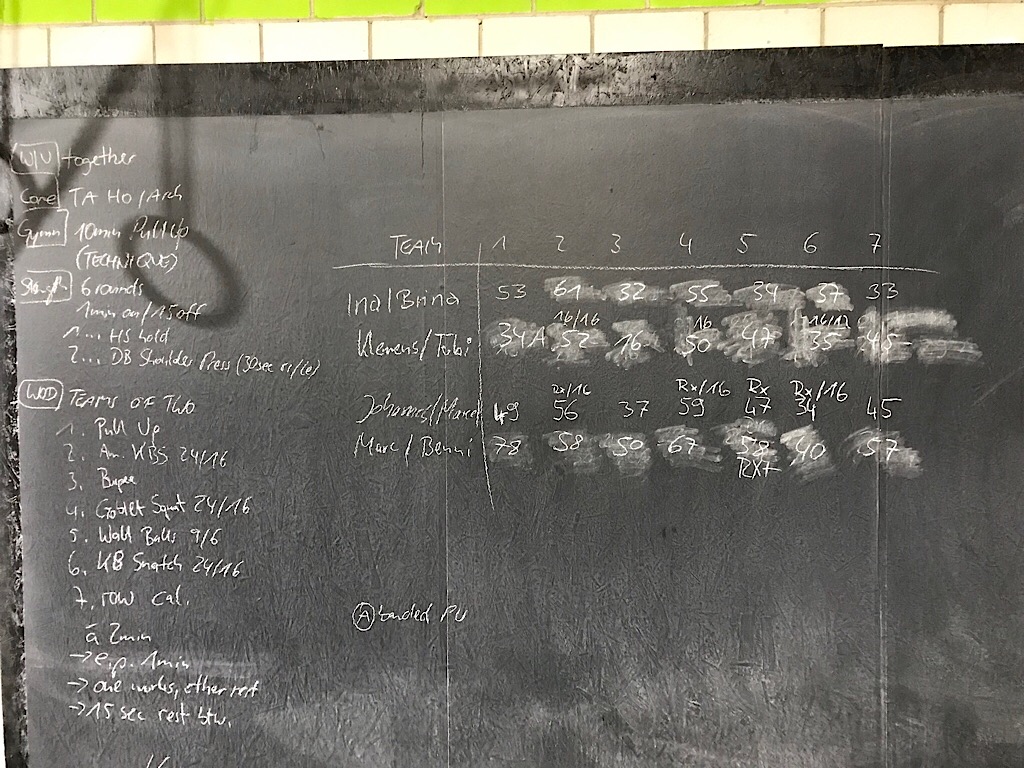 W/U together
Core TA HO/Arch
Gymn 10min Pull Up
(TECHNIQUE)
Strength 6 rounds
1min on/15off
1... HS hold
2... DB Shoulder Press (30sec ri/le)
WOD TEAMS OF TWO
1. Pull Up
2. Am. KBS 24/16
3. Burpee
4. Goblet Squat 24/16
5. Wall Balls 9/6
6. KB Snatch 24/16
7. row cal.
à 2min
→ e.p. 1min
→ one works, other rest
→ 15 sec rest btw.
TEAM 1 2 3 4 5 6 7
Ina/Brina 53 61 32 55 34 37 33
16/16 16 16/12
Klemens/Tobi 34A 52 16 50 47 35 45
Rx/16 Rx/16 Rx Rx/16
Johannes/ 49 56 37 59 47 34 45
Marc/Benni 78 58 50 67 58 40 57
RX+
A banded PU